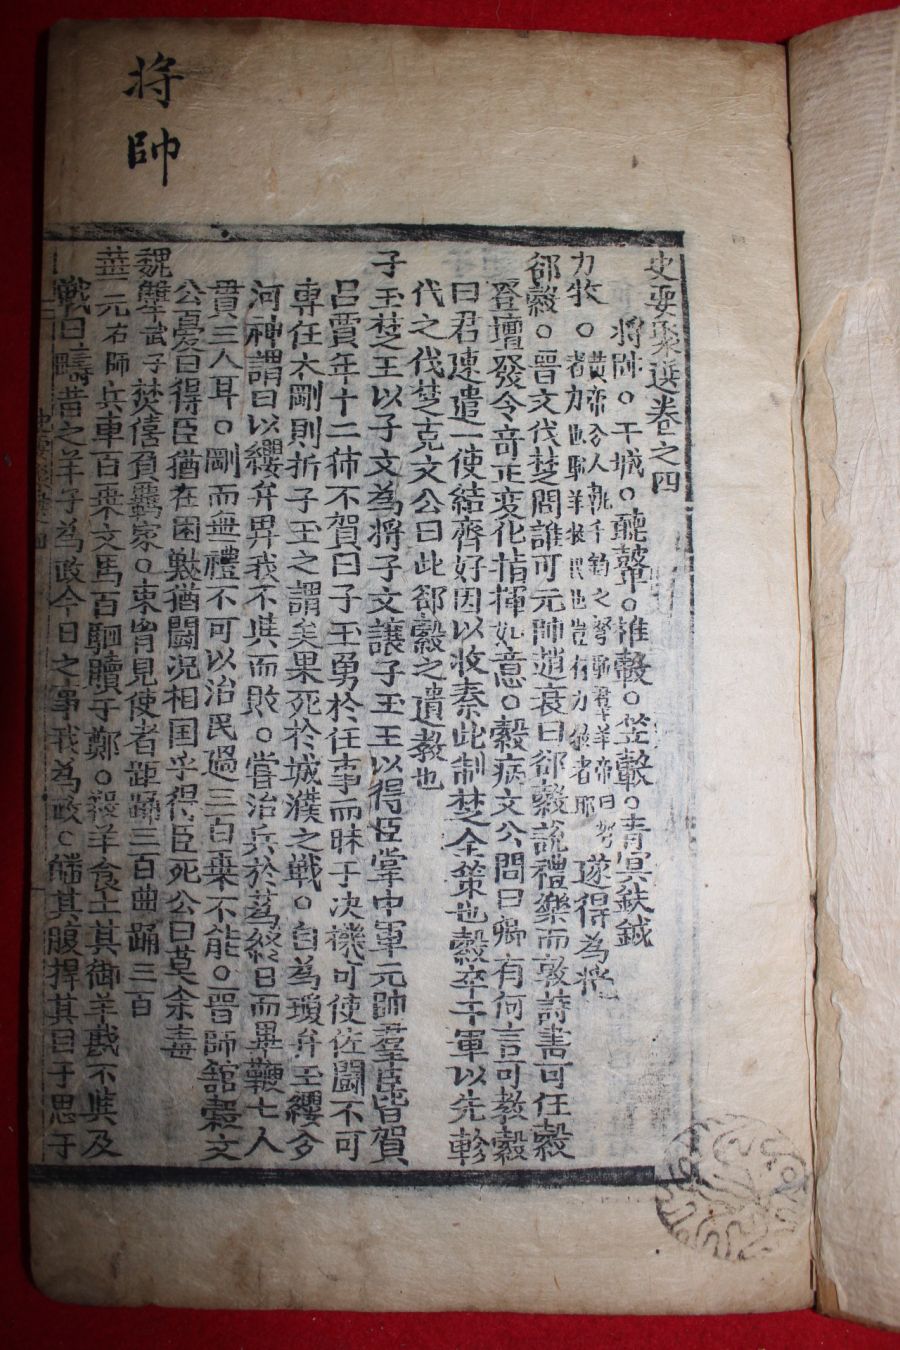 將帥
史要聚選卷之四
將帥○干城○聽鼙○推轂○笠轂○青冥鈇鉞
力牧○黃帝夢人執千鈞之弩驅羣羊帝曰力者力也驅羊牧民也豈有力牧者耶遂得為將
郤縠○晋文伐楚問誰可元帥趙衰曰郤縠說禮樂而敦詩書可任縠
登壇發令奇正变化指揮如意○縠病文公問曰卿有何言可教縠
曰君速遣一使結齊好因以收秦此制楚全策也縠卒于軍以先軫
代之伐楚克文公曰此郤縠之遺教也
子玉楚王以子文為將子文讓子玉王以得臣掌中軍元帥羣臣皆賀
呂賈年十二㐲不賀曰子玉勇於任事而昧于决機可使佐鬪不可
專任太剛則折子玉之謂矣果死於城濮之戰○自為瓊弁玉纓夢
河神謂曰以纓弁畀我不與而敗○嘗治兵於蒍終日而畢鞭七人
貫三人耳○剛而無禮不可以治民過三百乘不能○晋師舘穀文
公憂曰得臣猶在困獸猶鬪况相国乎得臣死公曰莫余毒
魏犨武子焚僖負羈家○束胷見使者距踊三百曲踊三百
華元右師兵車百乘文馬百駟贖于鄭○殺羊食士其御羊斟不與及
戰曰疇昔之羊子為政今日之事我為政○皤其腹睅其目于思于